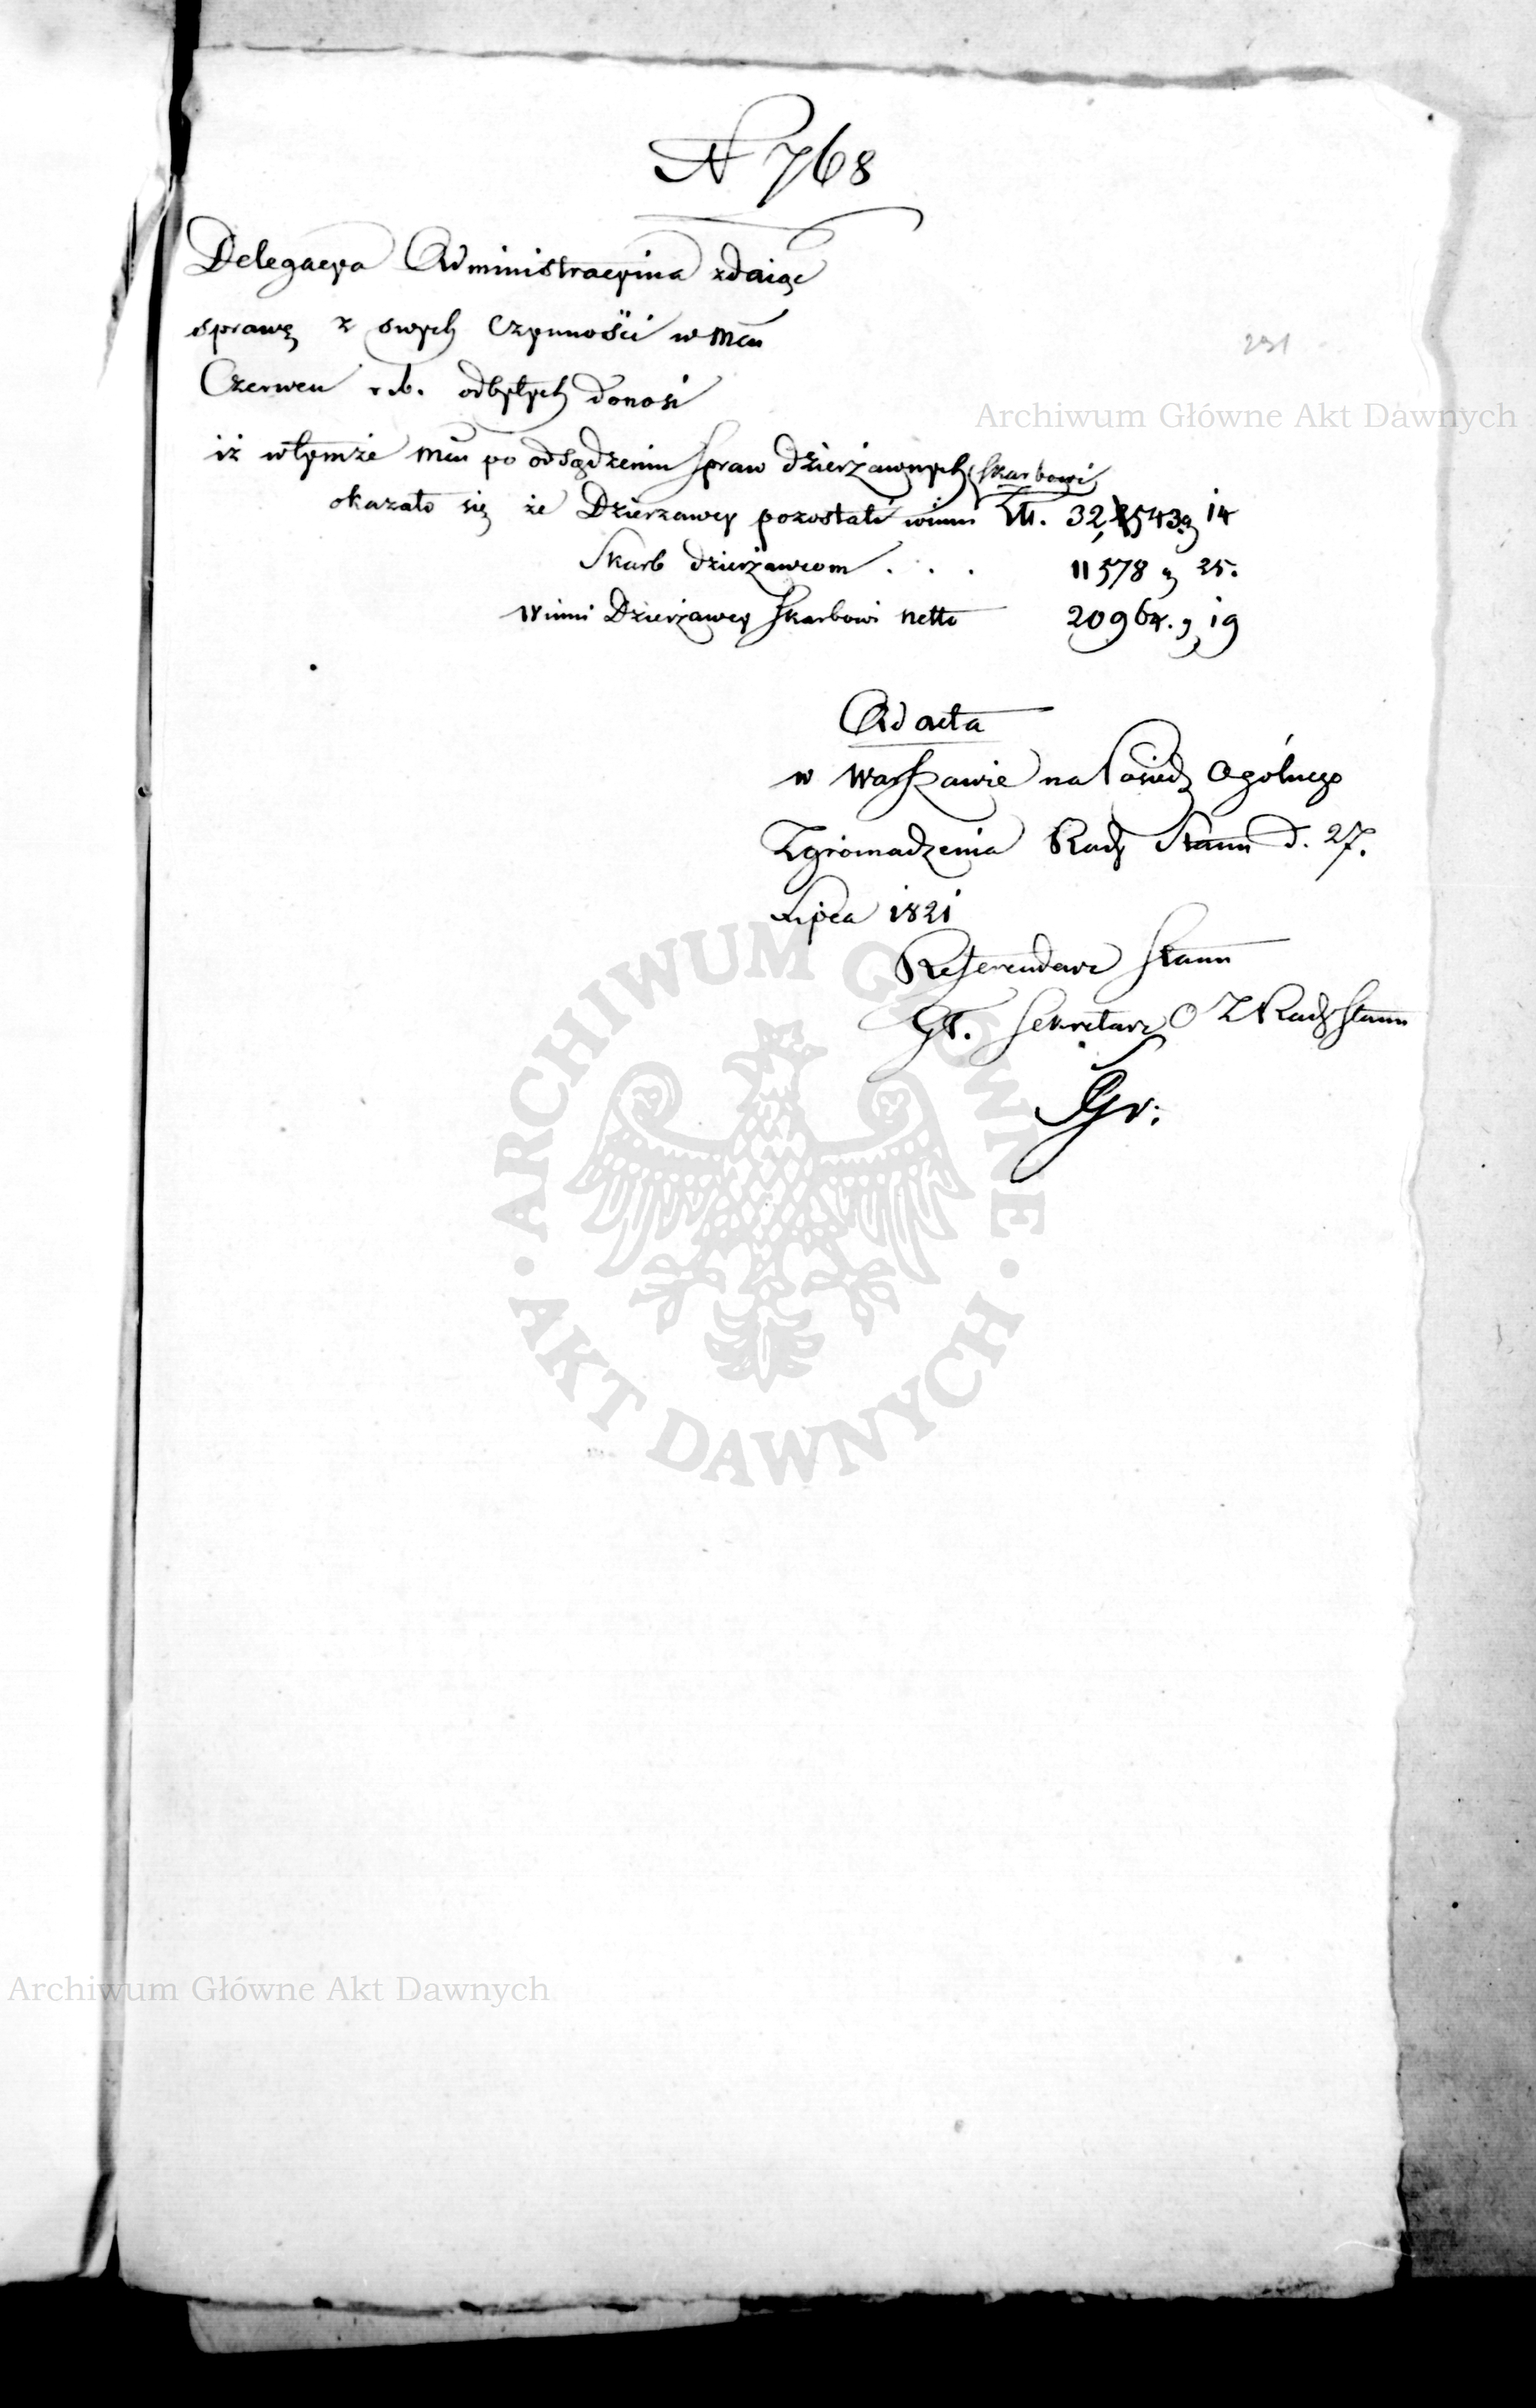 N 768
Delegacya Administracyina zdaiąc
sprawę z swych Czynności w Mcu
Czerwcu r. b. odbytych donosi
231
Archiwum Główne Akt Dawnych
iż w tymże Mcu po odsądzeniu spraw dzierżawnych skarbowi
okazało się że Dzierzawcy pozostali winni Zł. 32,543 g 14
Skarb dzierżawcom . . . 11578 g 25.
Winni Dzierżawcy skarbowi netto 20964. g 19
Ad acta
w Warszawie na Posiedz Ogólnego
Zgromadzenia Rady Stanu d. 27.
Lipca 1821
Referendarz Stanu
Gł. Sekretarz O Z Rady Stanu
ARCHIWUM GŁÓWNE
· AKT DAWNYCH ·
Archiwum Główne Akt Dawnych